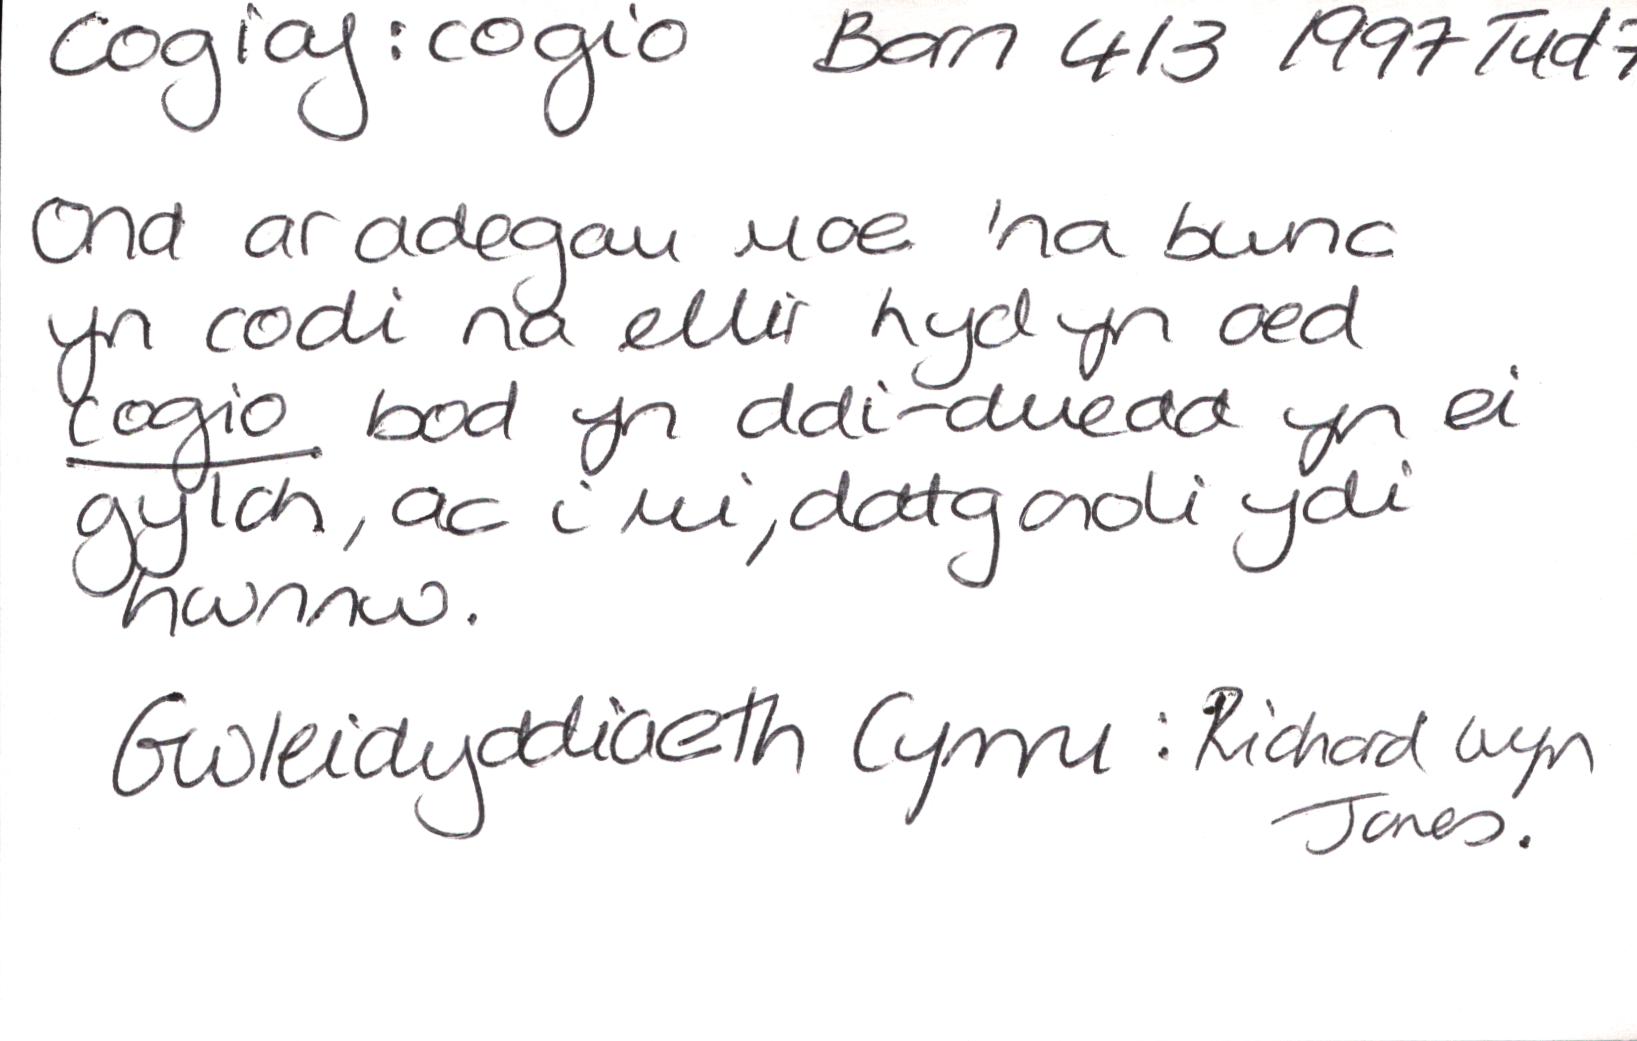 Cogiaf: cogio Barn 413 1997 Tud 7
Ond ar adegau mae 'na bwnc
yn codi na ellir hyd yn oed
cogio bod yn ddi-duedd yn ei
gylch, ac i mi, datganoli ydi
hwnnw.
Gwleidyddiaeth Cymru : Richard Wyn
Jones.